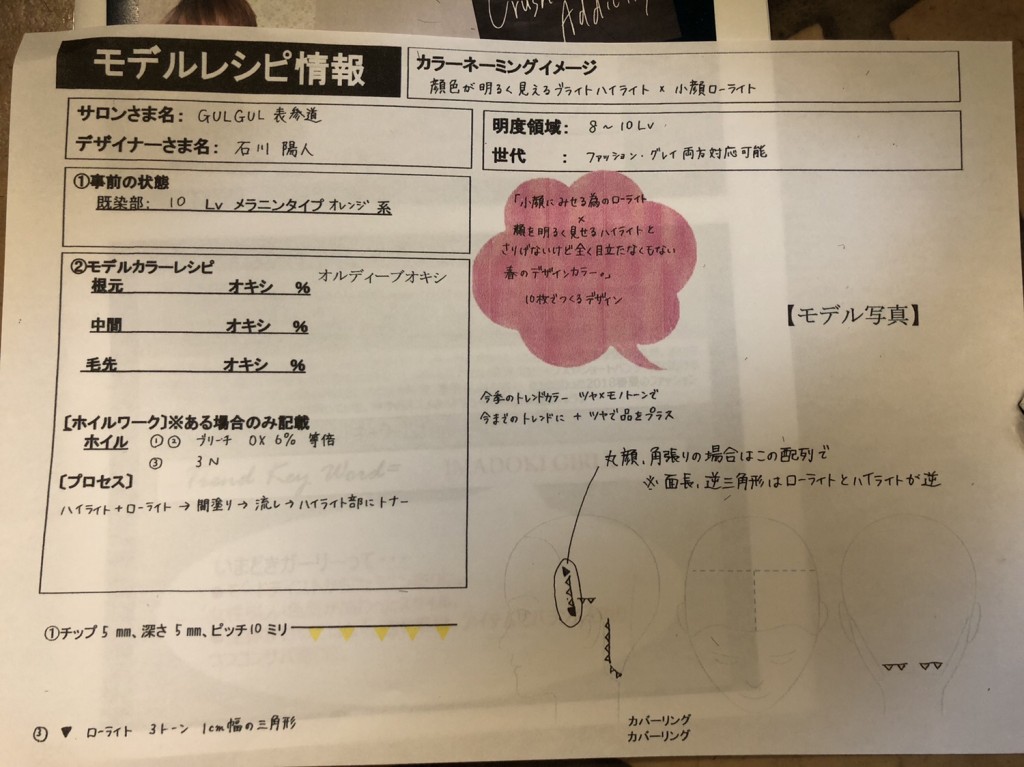 Crush
Addict
モデルレシピ情報
カラーネーミングイメージ
顔色が明るく見えるブライトハイライト × 小顔ローライト
サロンさま名: GULGUL 表参道
デザイナーさま名: 石川 陽人
明度領域: 8〜10Lv
世代 : ファッション・グレイ両方対応可能
①事前の状態
既染部: 10 Lv メラニンタイプ オレンジ 系
「小顔にみせる為のローライト
×
顔を明るく見せるハイライトと
さりげないけど全く目立たなくもない
春のデザインカラー。」
10枚でつくるデザイン
②モデルカラーレシピ
オルディーブオキシ
根元 オキシ %
中間 オキシ %
毛先 オキシ %
【モデル写真】
今季のトレンドカラー ツヤ×モノトーンで
今までのトレンドに + ツヤで品をプラス
〔ホイルワーク〕※ある場合のみ記載
ホイル ①② ブリーチ OX 6% 等倍
③ 3N
〔プロセス〕
ハイライト+ローライト → 間塗り → 流し → ハイライト部にトナー
丸顔、角張りの場合はこの配列で
※ 面長、逆三角形はローライトとハイライトが逆
Trend Key Word=
IMADOKI GIRL
いまどきガーリーって・・・
①チップ 5 mm、深さ 5 mm、ピッチ 10 ミリ
③ ▼ ローライト 3トーン 1cm幅の三角形
カバーリング
カバーリング